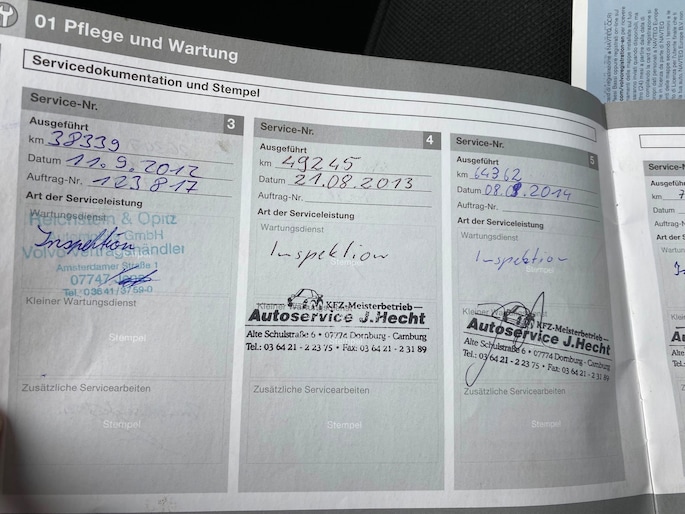 01 Pflege und Wartung
Servicedokumentation und Stempel
Service-Nr. 3
Ausgeführt
km 38339
Datum 11.9.2012
Auftrag-Nr. 123817
Art der Serviceleistung
Wartungsdienst
Reichstein & Opitz
GmbH
Volvo Vertragshändler
Inspektion
Amsterdamer Straße 1
07747
Tel. 03641/3759-0
Kleiner Wartungsdienst
Stempel
Zusätzliche Servicearbeiten
Stempel
Service-Nr. 4
Ausgeführt
km 49245
Datum 21.08.2013
Auftrag-Nr.
Art der Serviceleistung
Wartungsdienst
Inspektion
Kleiner
KFZ-Meisterbetrieb
Autoservice J.Hecht
Alte Schulstraße 6 • 07774 Dornburg - Camburg
Tel.: 03 64 21 - 2 23 75 • Fax: 03 64 21 - 2 31 89
Zusätzliche Servicearbeiten
Stempel
Service-Nr. 5
Ausgeführt
km 64362
Datum 08.09.2014
Auftrag-Nr.
Art der Serviceleistung
Wartungsdienst
Inspektion
Stempel
Kleiner
KFZ-Meisterbetrieb
Autoservice J.Hecht
Alte Schulstraße 6 • 07774 Dornburg - Camburg
Tel.: 03 64 21 - 2 23 75 • Fax: 03 64 21 - 2 31 89
Zusätzliche Servicearbeiten
Stempel
Service-N
Ausgeführt
km 7
Datum
Auftrag-N
Art der S
Wartungs
Kleiner W
Au
Alte
Tel.:
Zusätzlic